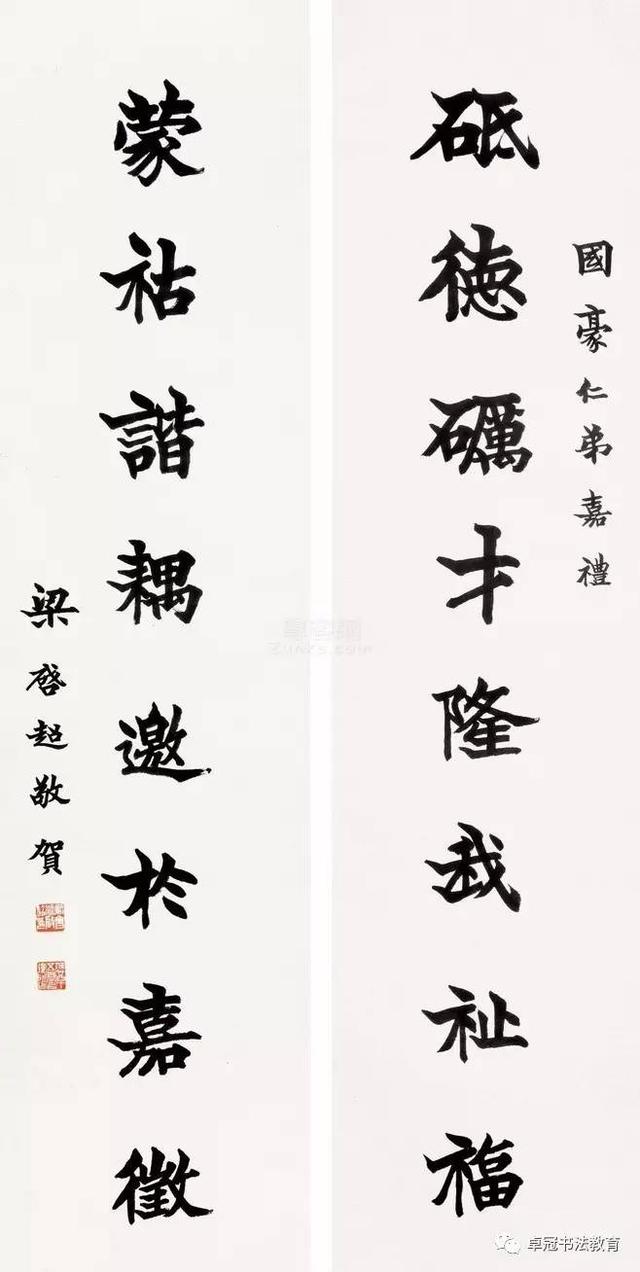 國豪仁弟嘉禮
砥德礪才隆我祉福
蒙祜諧耦邀於嘉徵
梁啓超敬賀
卓冠书法教育